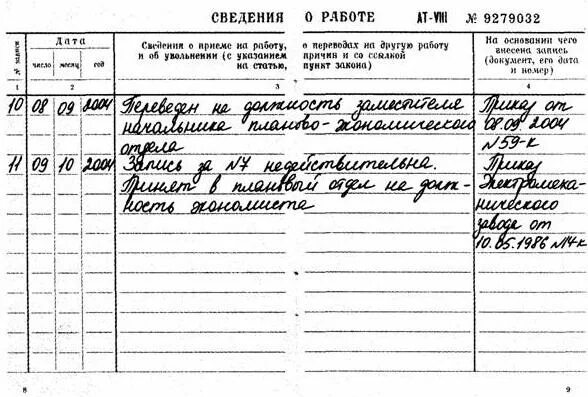 СВЕДЕНИЯ О РАБОТЕ АТ-VIII № 9279032
№ записи
Дата
число месяц год
Сведения о приеме на работу, о переводах на другую работу
и об увольнении (с указанием причин и со ссылкой
на статью, пункт закона)
На основании чего
внесена запись
(документ, его дата
и номер)
1 2 3 4
10 08 09 2004 Переведен на должность заместителя Приказ от
начальника планово-экономического 08.09.2004
отдела N59-к
11 09 10 2004 Запись за N7 недействительна. Приказ
Принят в плановый отдел на долж- Электромеха-
ность экономиста нического
завода от
10.05.1986 N14-к
8 9